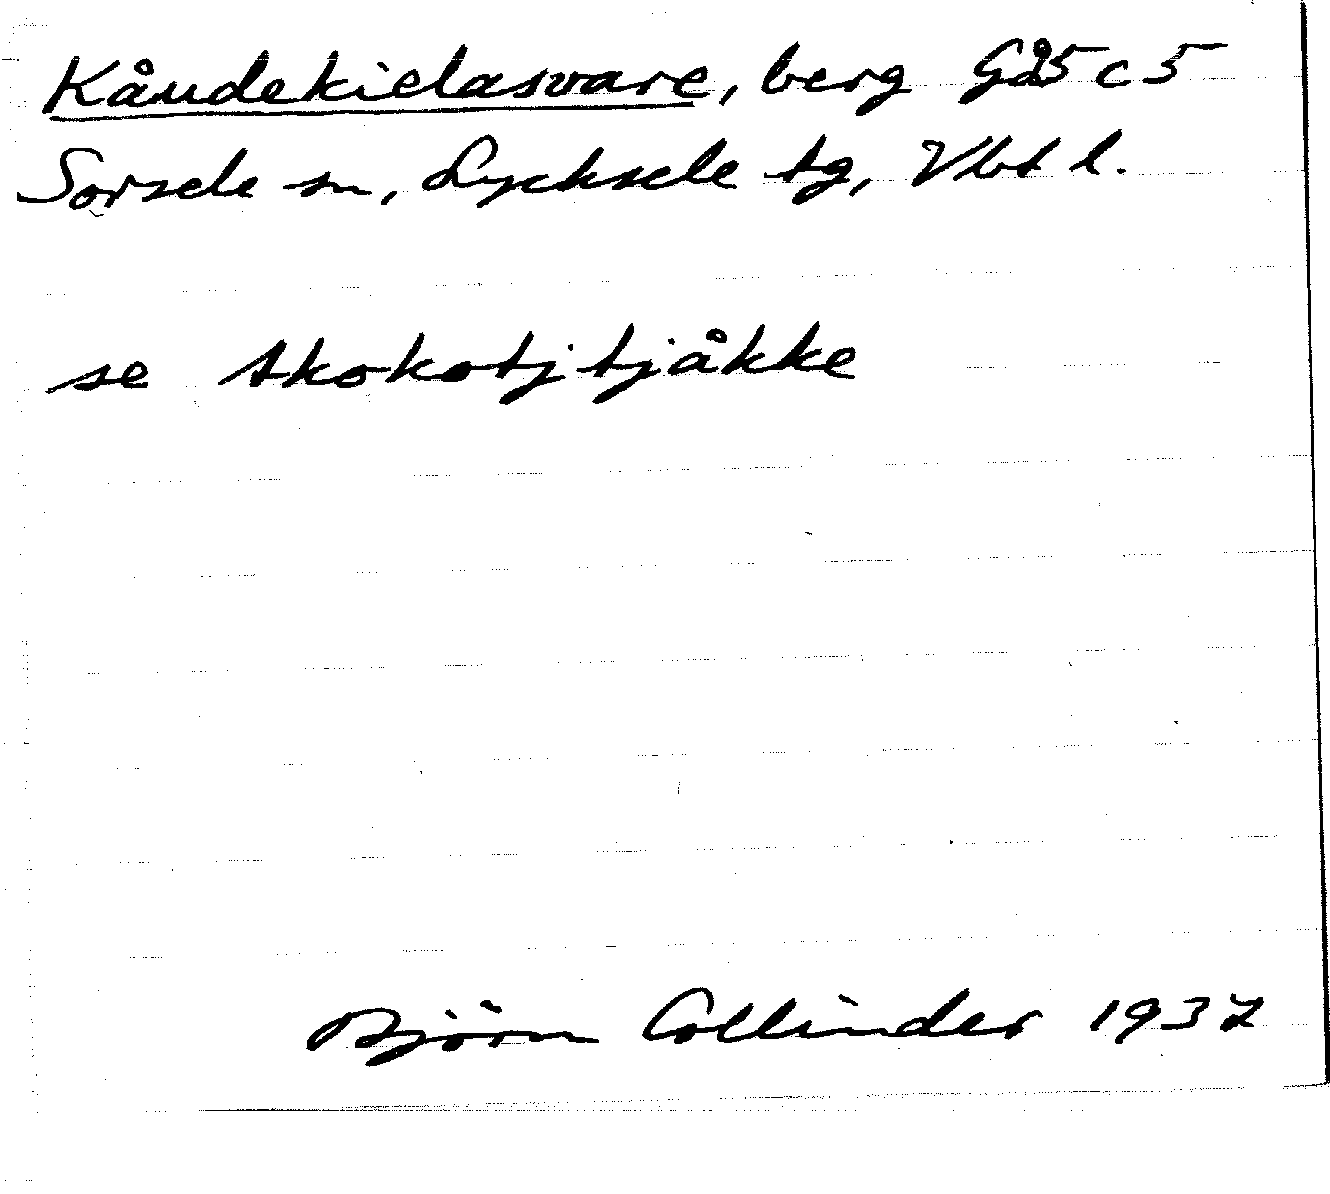 Kåudekielasvare, berg Gå5c5
Sorsele sn, Lycksele tg, Vbt l.
se Skokotjtjåkke
Björn Collinder 1937